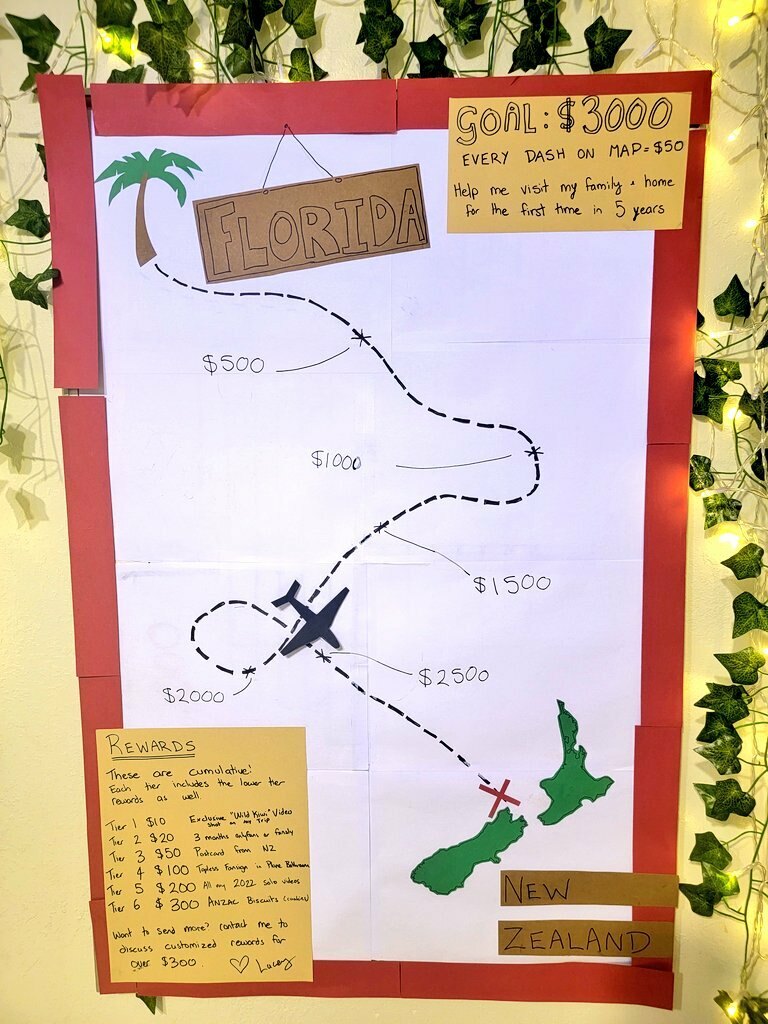 GOAL: $3000
EVERY DASH ON MAP = $50
Help me visit my family + home
for the first time in 5 years
FLORIDA
$500
$1000
$1500
$2000
$2500
NEW
ZEALAND
REWARDS
These are cumulative!
Each tier includes the lower tier
rewards as well.
Tier 1 $10 Exclusive "Wild Kiwi" Video
shot on my trip
Tier 2 $20 3 months onlyfans or fansly
Tier 3 $50 Postcard from NZ
Tier 4 $100 Topless Fansign in Plane Bathroom
Tier 5 $200 All my 2022 solo videos
Tier 6 $300 ANZAC Biscuits (cookies)
Want to send more? contact me to
discuss customized rewards for
over $300. Lucey